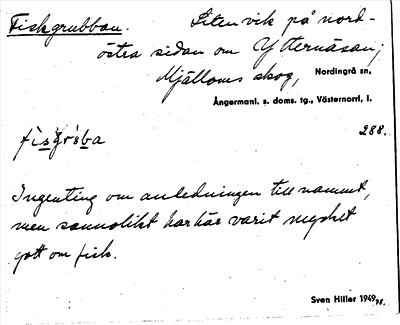 Fiskgrubban. Liten vik på nord-
östra sidan om Ytternäsan,
Mjälloms skog, Nordingrå sn,
Ångermanl. s. doms. tg., Västernorrl. l.
288.
Ingenting om anledningen till namnet,
men sannolikt har här varit mycket
gott om fisk.
Sven Hiller 1949